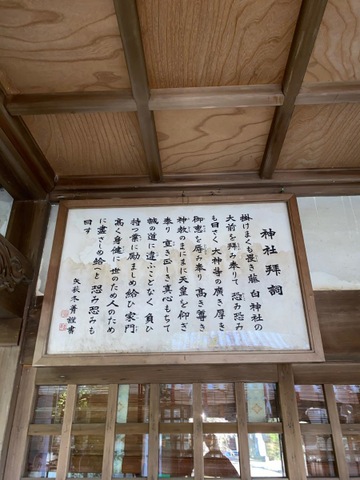 神社拝詞
掛けまくも畏き藤白神社の
大前を拝み奉りて 恐み恐み
も白さく 大神等の廣き厚き
御恵を辱み奉り 高き尊き
神教のまにまに天皇を仰ぎ
奉り 直き正しき真心もちて
誠の道に違ふことなく 負ひ
持つ業に励ましめ給ひ 家門
高く身健に 世のため人のため
に盡さしめ給へと 恐み恐みも
白す